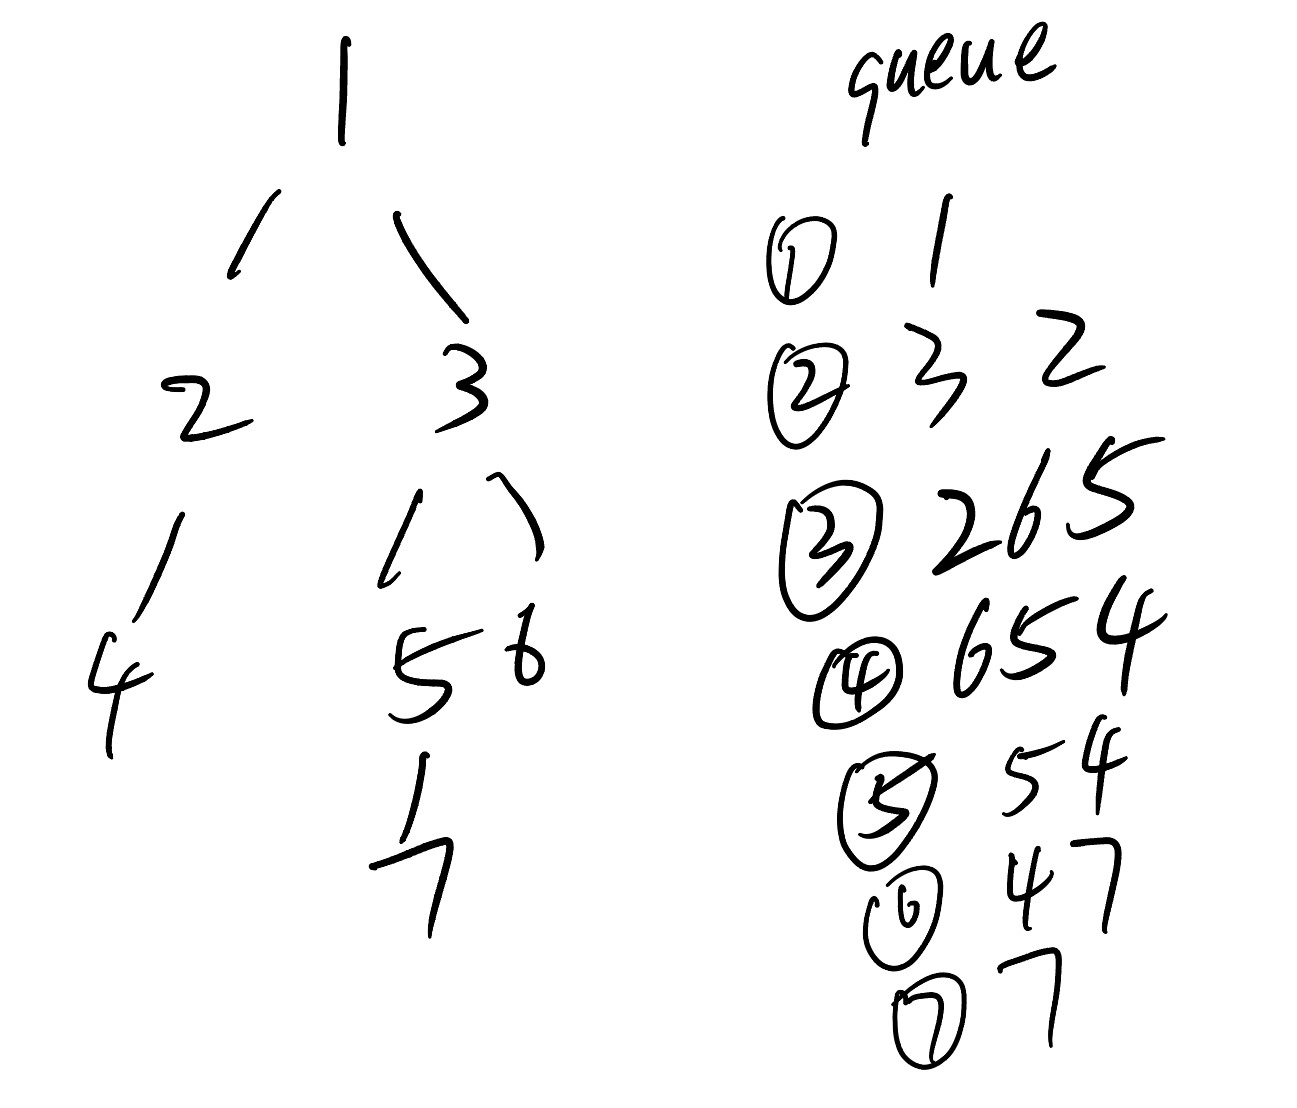 1
2 3
4 5 6
7
queue
① 1
② 3 2
③ 2 6 5
④ 6 5 4
⑤ 5 4
⑥ 4 7
⑦ 7